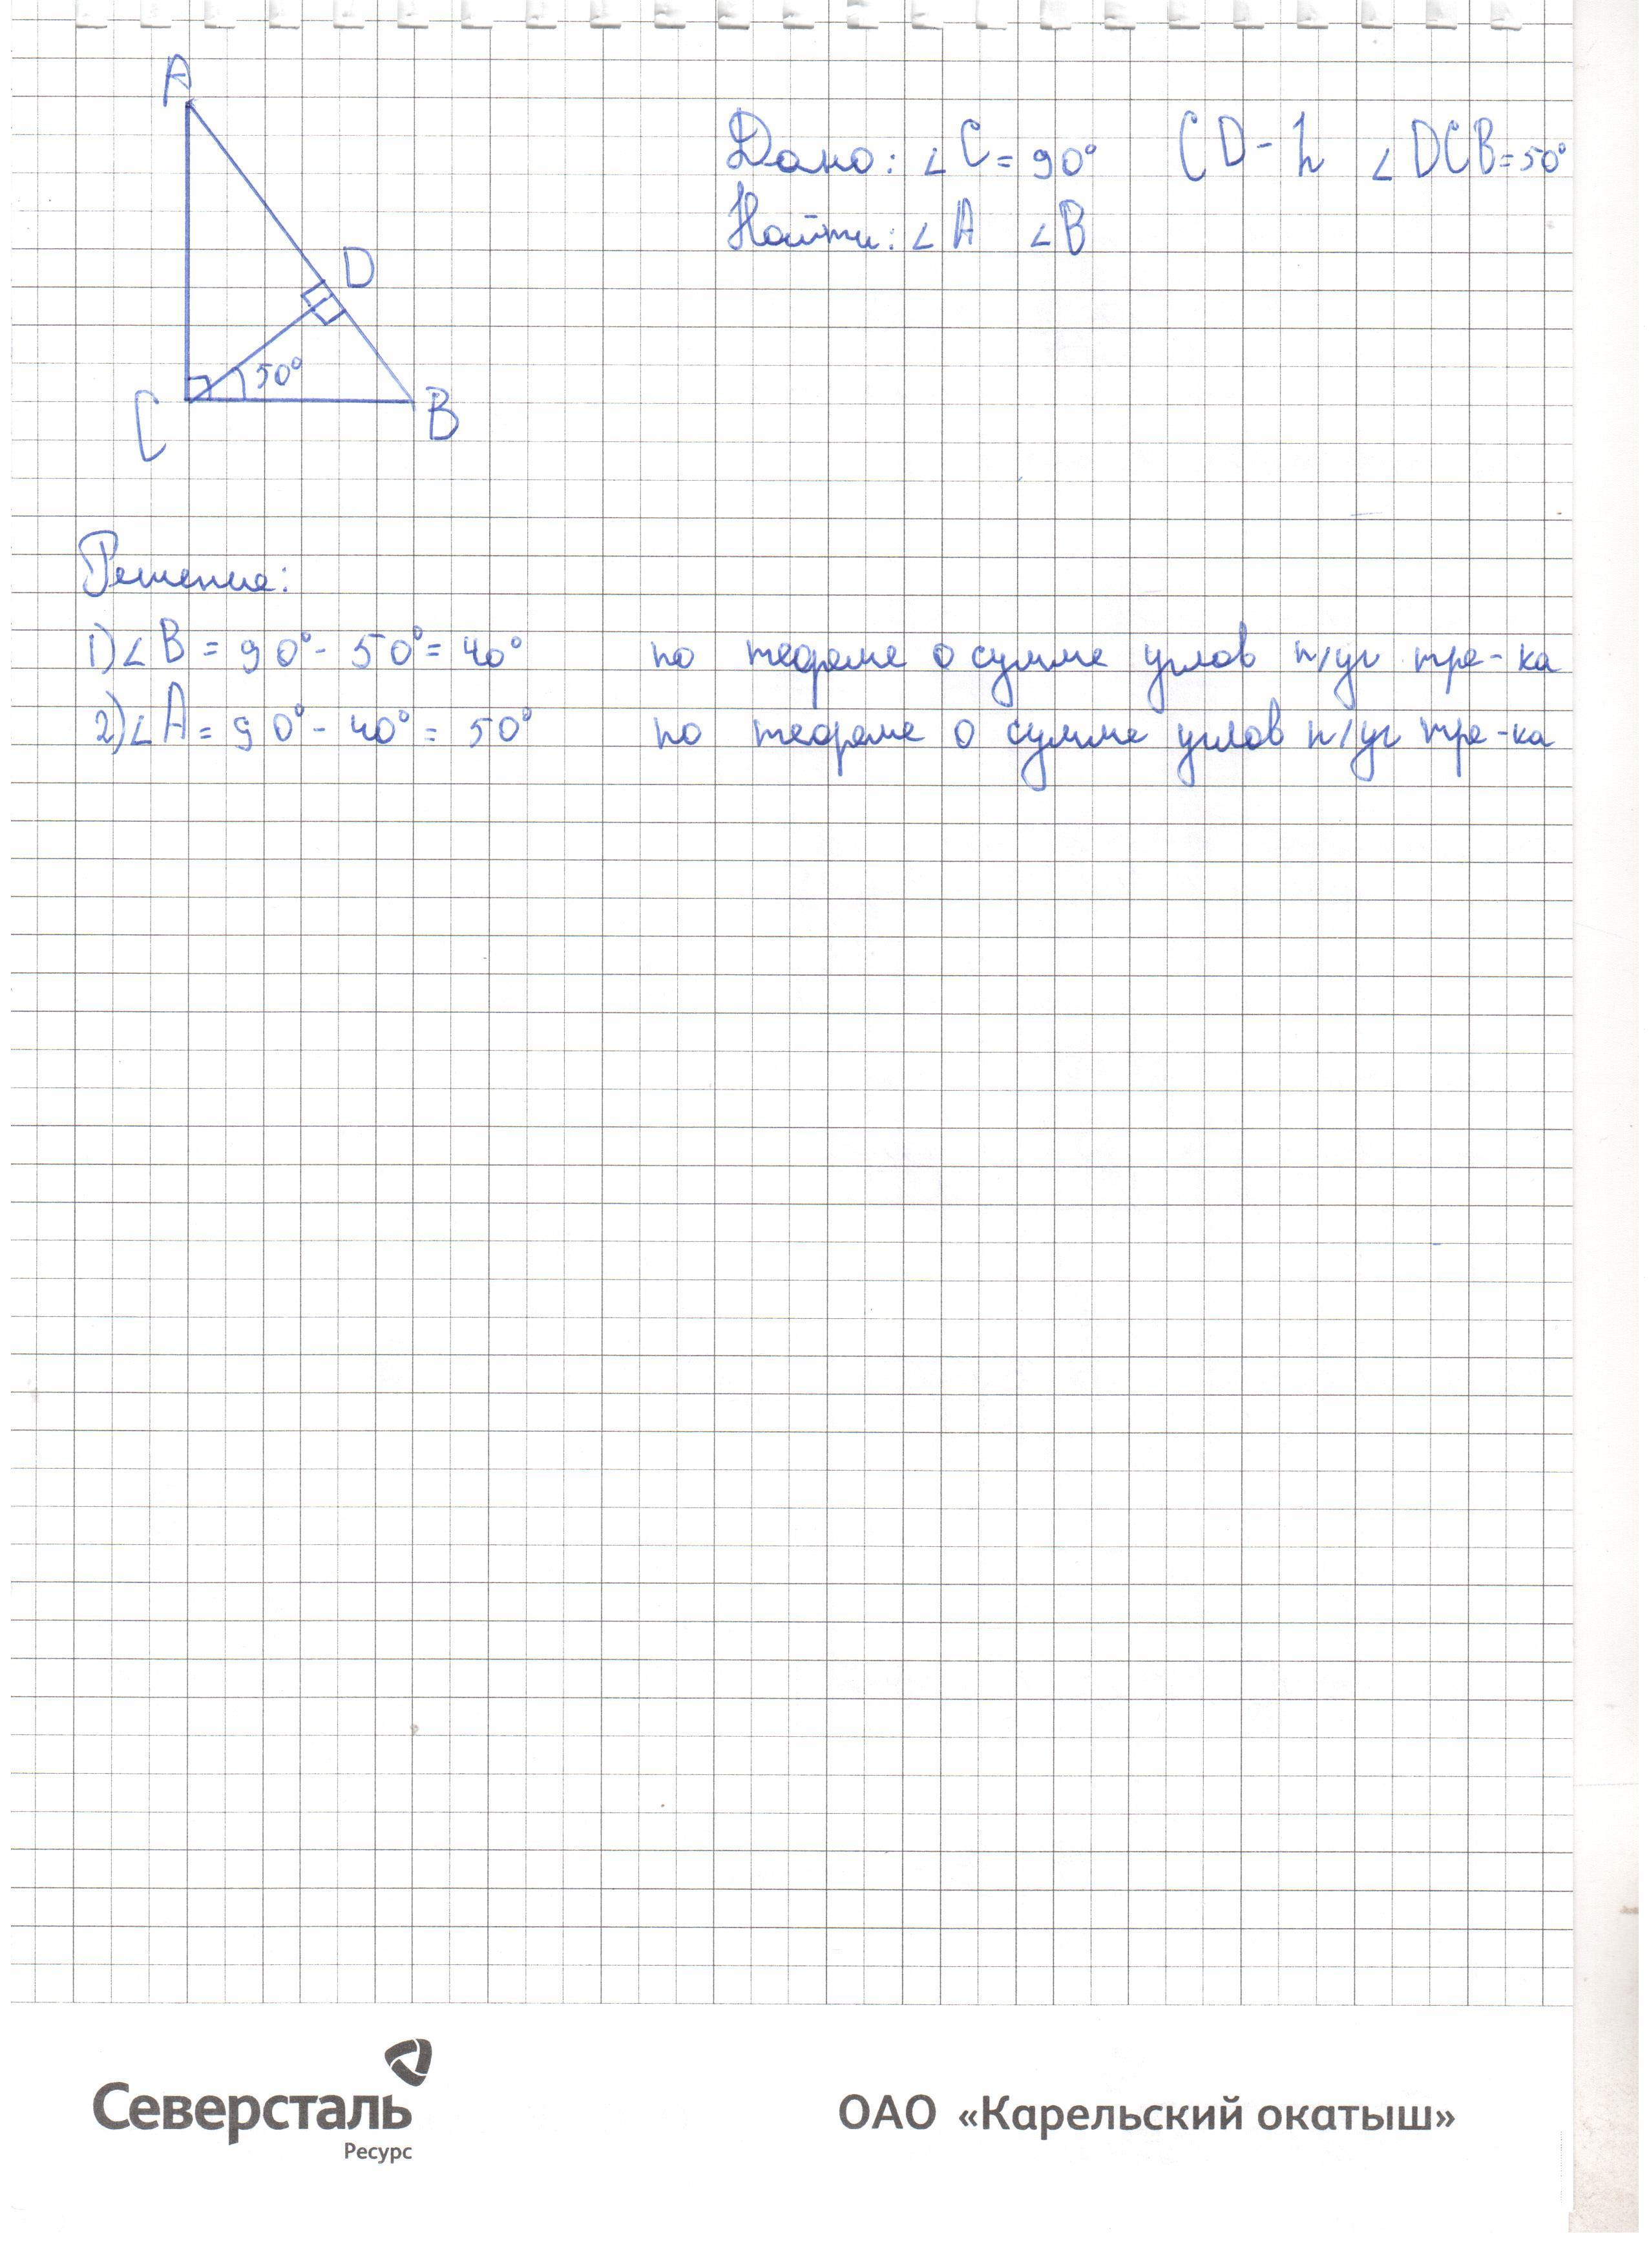 A
Дано: ∠C = 90° CD - h ∠DCB = 50°
Найти: ∠A ∠B
D
50°
C
B
Решение:
1) ∠B = 90° - 50° = 40° по теореме о сумме углов п/уг тре-ка
2) ∠A = 90° - 40° = 50° по теореме о сумме углов п/уг тре-ка
Северсталь
Ресурс
ОАО «Карельский окатыш»